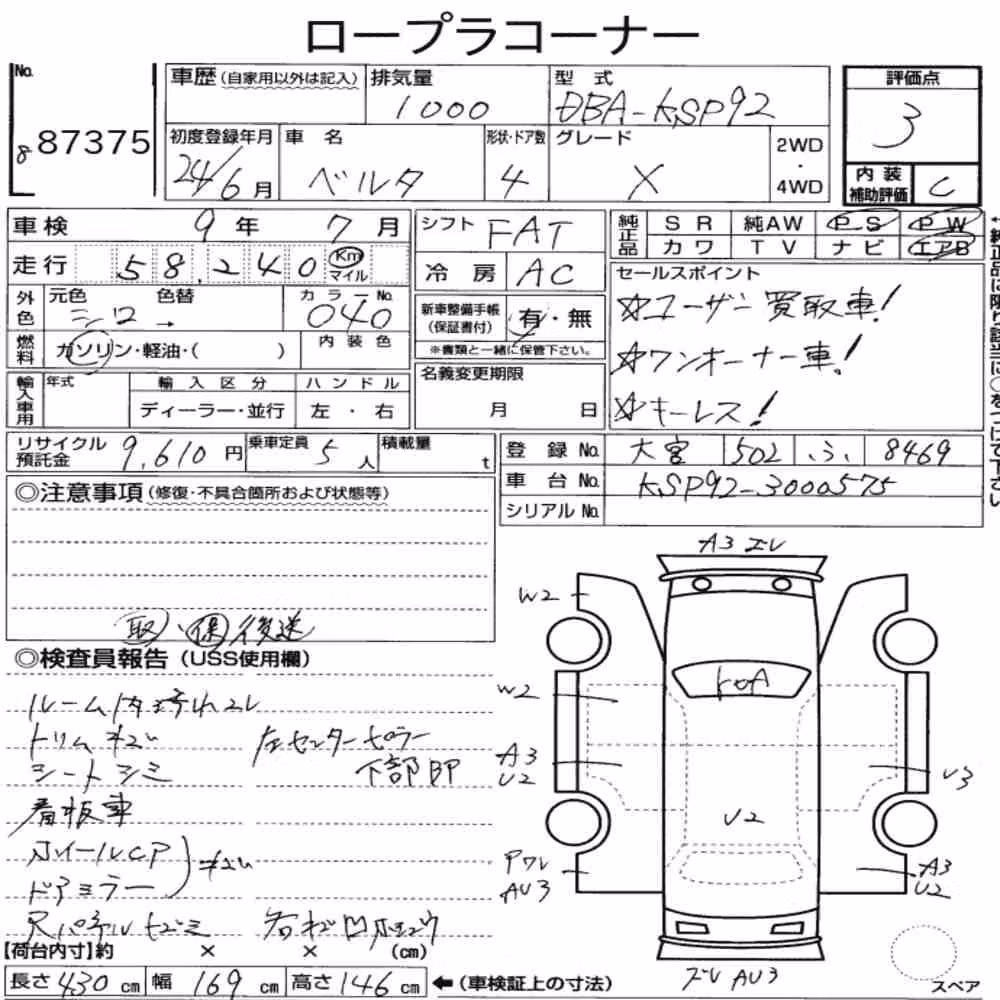 ロープラコーナー
No.
8 87375
車歴(自家用以外は記入)
排気量
1000
型式
DBA-KSP92
評価点
3
初度登録年月
24/6月
車名
ベルタ
形状・ドア数
4
グレード
X
2WD
・
4WD
内装
補助評価
C
車検 9年 7月
走行 58,240 Km マイル
シフト
FAT
冷房
AC
純正品
SR 純AW PS PW
カワ TV ナビ エアB
セールスポイント
☆ユーザー買取車!
☆ワンオーナー車!
☆キーレス!
外色
元色
シロ
色替
→
カラーNo.
040
燃料
ガソリン・軽油・( )
内装色
新車整備手帳
(保証書付)
有・無
※書類と一緒に保管下さい。
輸入車用
年式
輸入区分
ディーラー・並行
ハンドル
左・右
名義変更期限
月 日
リサイクル
預託金
9,610円
乗車定員 5人
積載量 t
登録No. 大宮 502 ふ 8469
車台No. KSP92-3000575
シリアルNo.
◎注意事項(修復・不具合箇所および状態等)
取・保後送
◎検査員報告(USS使用欄)
ルーム内汚れスレ
トリムキズ
左センターピラー
シートシミ
下部凹
看板車
ホイールCP
ドアミラー
キズ
【荷台内寸】約 × × (cm)
長さ430cm 幅169cm 高さ146cm
←(車検証上の寸法)
A3 ズレ
W2
W2
A3
U2
U3
U2
AU3
A3
U2
ズレ AU3
スペア